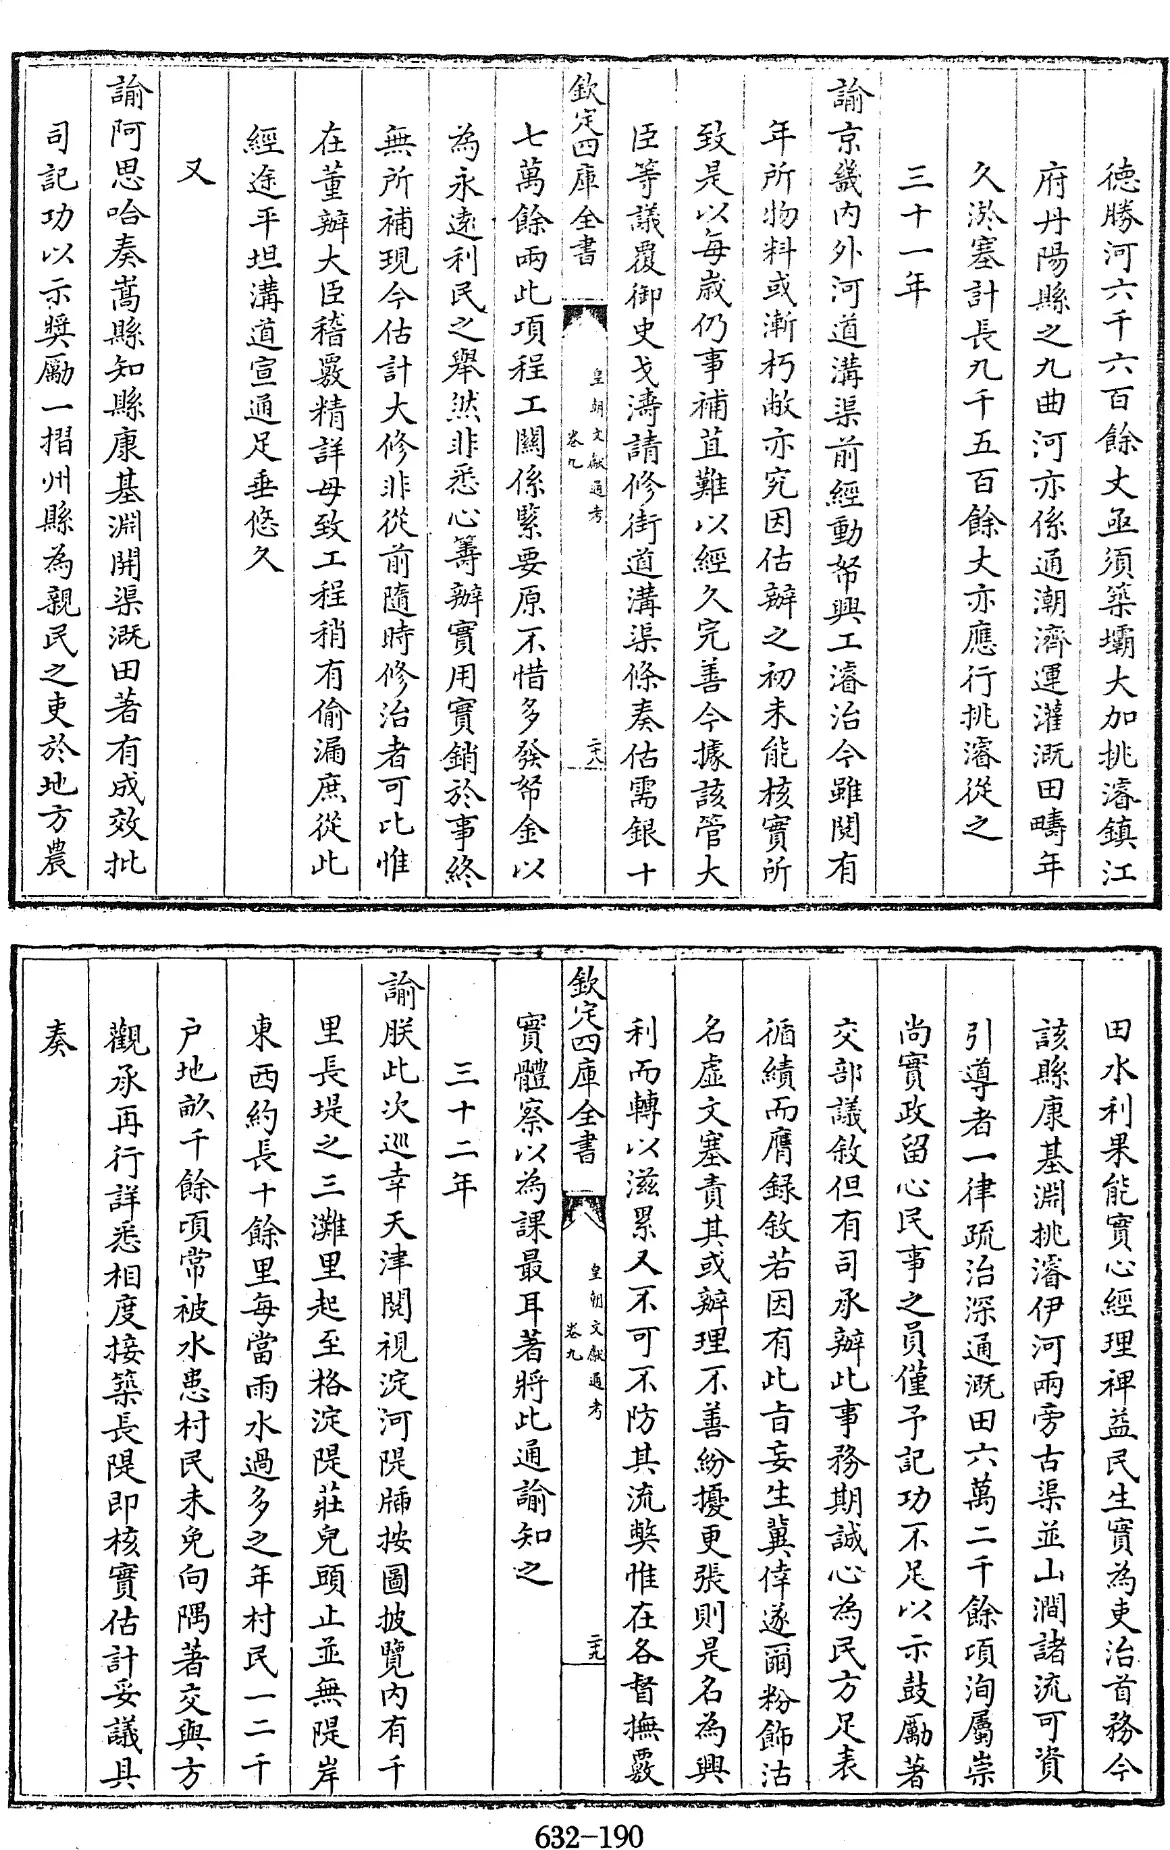 德勝河六千六百餘丈亟須築壩大加挑濬鎮江
府丹陽縣之九曲河亦係通潮濟運灌溉田疇年
久淤塞計長九千五百餘丈亦應行挑濬從之
三十一年
諭京畿内外河道溝渠前經動帑興工濬治今雖閱有
年所物料或漸朽敝亦究因估辦之初未能核實所
致是以每歲仍事補苴難以經久完善今據該管大
臣等議覆御史戈濤請修街道溝渠條奏估需銀十
欽定四庫全書
皇朝文獻通考
卷九
二十八
七萬餘兩此項程工關係緊要原不惜多發帑金以
為永遠利民之舉然非悉心籌辦實用實銷於事終
無所補現今估計大修非從前隨時修治者可比惟
在董辦大臣稽覈精詳毋致工程稍有偷漏庶從此
經途平坦溝道宣通足垂悠久
又
諭阿思哈奏嵩縣知縣康基淵開渠溉田著有成效批
司記功以示獎勵一摺州縣為親民之吏於地方農
田水利果能實心經理裨益民生實為吏治首務今
該縣康基淵挑濬伊河兩旁古渠並山澗諸流可資
引導者一律疏治深通溉田六萬二千餘頃洵屬崇
尚實政留心民事之員僅予記功不足以示鼓勵著
交部議敘但有司承辦此事務期誠心為民方足表
循績而膺録敘若因有此旨妄生冀倖遂爾粉飾沽
名虛文塞責其或辦理不善紛擾更張則是名為興
利而轉以滋累又不可不防其流獘惟在各督撫覈
欽定四庫全書
皇朝文獻通考
卷九
二十九
實體察以為課最耳著將此通諭知之
三十二年
諭朕此次巡幸天津閱視淀河隄牐按圖披覽内有千
里長堤之三灘里起至格淀隄莊兒頭止並無隄岸
東西約長十餘里每當雨水過多之年村民一二千
户地畝千餘頃常被水患村民未免向隅著交與方
觀承再行詳悉相度接築長隄即核實估計妥議具
奏
632-190